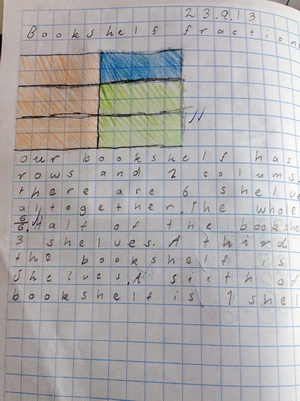 23.9.13
Bookshelf fraction
our bookshelf has
rows and 2 colums
there are 6 shelve
altogether. The whole
6/6. Half of the bookshe
3 shelves. A third
the bookshelf is
shelves. A sixth of
bookshelf is 1 shel